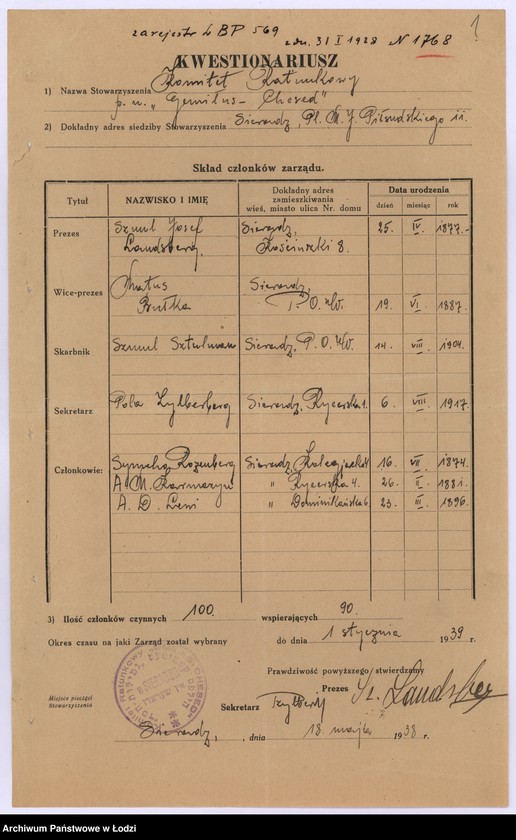 zarejestr L BP 569
z dn. 31 I 1928 N 1768
1
KWESTIONARIUSZ
1) Nazwa Stowarzyszenia Komitet Ratunkowy
p. n. „Gemiłus-Chesed"
2) Dokładny adres siedziby Stowarzyszenia Sieradz, Pl. M. J. Piłsudskiego 11.
Skład członków zarządu.
Tytuł NAZWISKO I IMIĘ Dokładny adres zamieszkiwania wieś, miasto ulica Nr. domu Data urodzenia
dzień miesiąc rok
Prezes Szmul Josef Landsberg. Sieradz, Kościuszki 8. 25. IV. 1877.-
Wice-prezes Matus Bułka Sieradz, P. O. W. 19. VI. 1887.
Skarbnik Szmul Sztulman Sieradz, P. O. W. 14. VIII. 1904.
Sekretarz Pola Zylberberg Sieradz, Rycerska 1. 6. VIII. 1917.
Członkowie: Symcha Rozenberg Sieradz, 16. VII. 1874.
A. M. Karmazyn " Rycerska 4. 26. II. 1881.
A. D. Lewi " Dominikańska 6. 23. III. 1896.
3) Ilość członków czynnych 100. wspierających 90.
Okres czasu na jaki Zarząd został wybrany do dnia 1 stycznia 1939 r.
Prawdziwość powyższego stwierdzamy
Miejsce pieczęci
Stowarzyszenia
Prezes Sz. Landsberg
Sekretarz
Sieradz, dnia 18. maja 1938 r.
Archiwum Państwowe w Łodzi